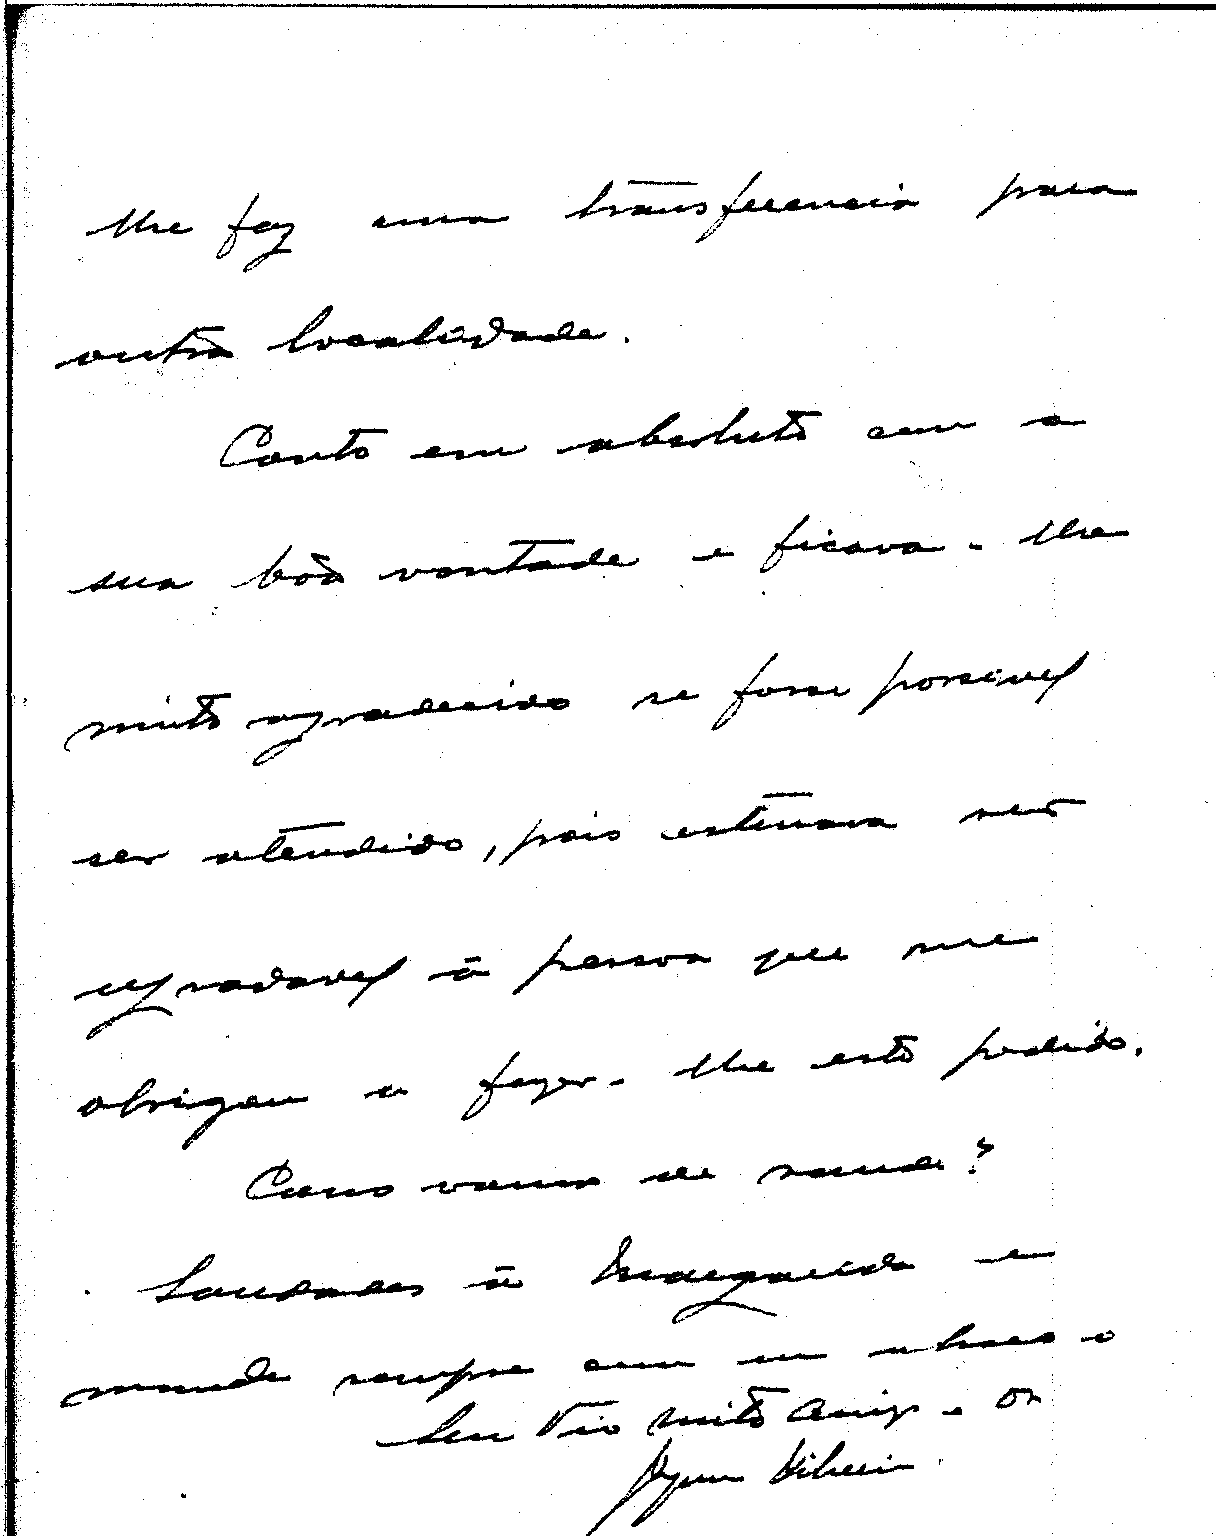 lhe faz uma transferencia para
outra localidade.
Conto em absoluto com a
sua bôa vontade e ficava-lhe
muito agradecido se fosse possivel
ser atendido, pois estimava ser
agradavel á pessoa que me
obrigou a fazer-lhe este pedido.
Como vamos de saude?
Saudades á Margarida e
mande sempre com um abraço o
Seu Tio muito amigo e
Ribeiro